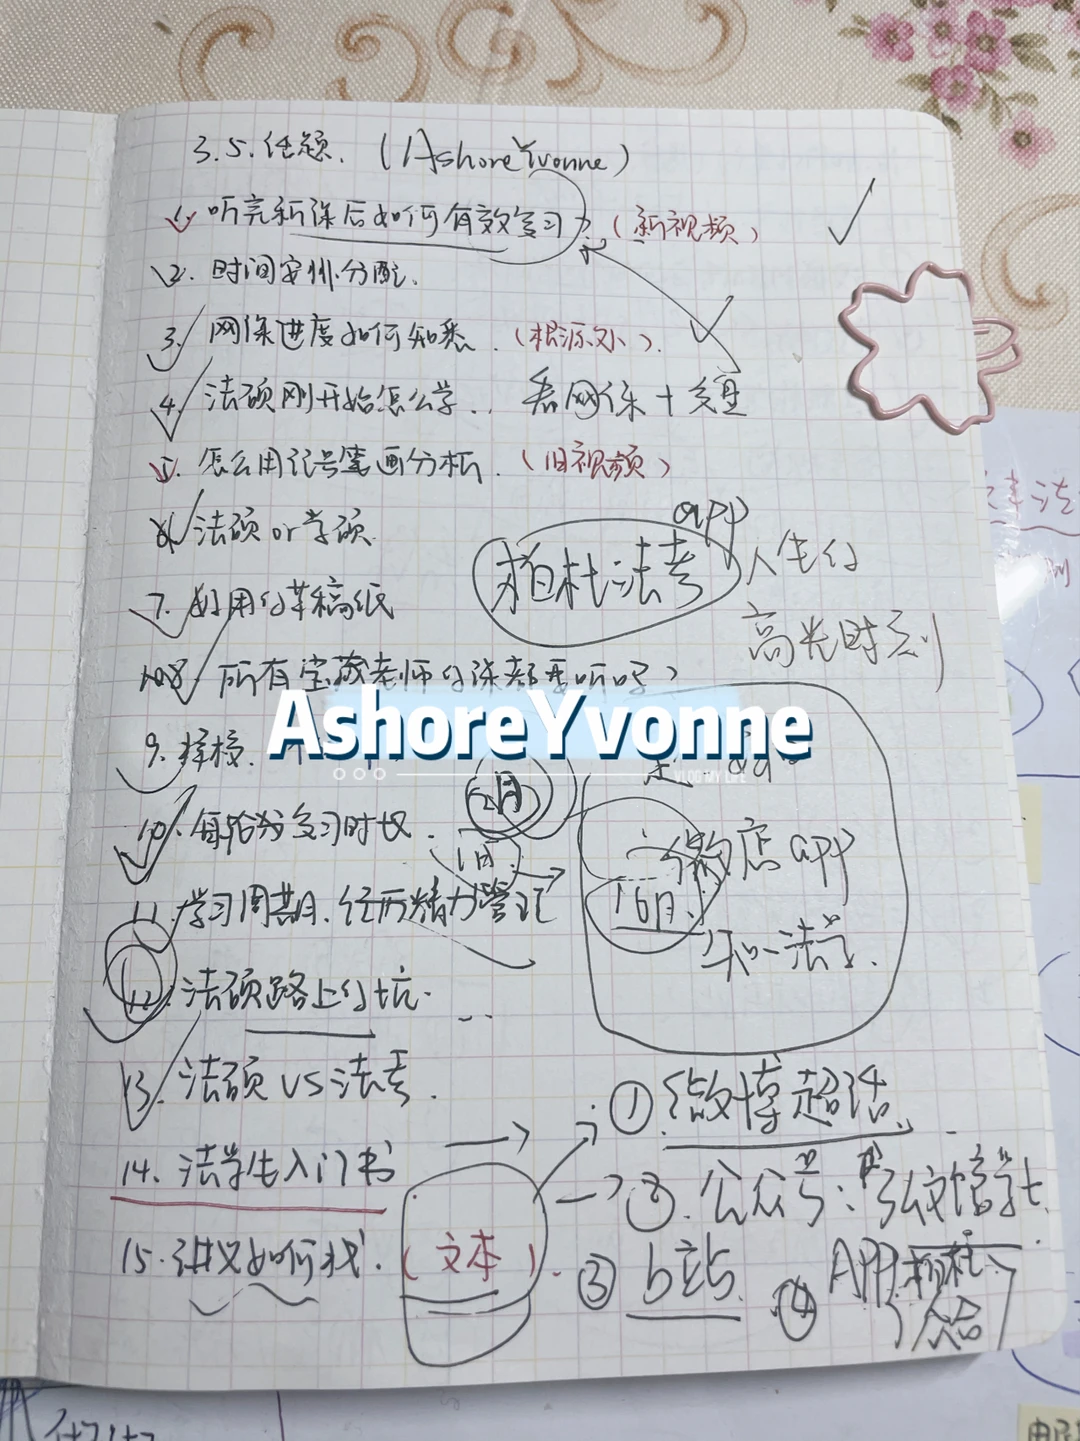 3.5.任题.（AshoreYvonne）
1. 听完新课后如何有效复习？（新视频）
2. 时间安排分配.
3. 网课进度如何知悉.（根源处）.
4. 法硕刚开始怎么学.. 看网课+
5. 怎么用记号笔画分析.（旧视频）
6. 法硕or学硕.
app
柏杜法考
人生的
7. 好用的草稿纸
高光时刻
8. 所有宝藏老师的课都要听吗？
AshoreYvonne
VLOG MY LIFE
9. 择校.
2月
10. 每阶段复习时长.
1月.
微店app
11. 学习周期. 经历精力管理
16月.
知一法学.
12. 法硕路上的坑.
13. 法硕VS法考.
① 微博超话.
14. 法学生入门书
② 公众号：
15. 讲义如何找.（文本）.
③ b站
④ APP